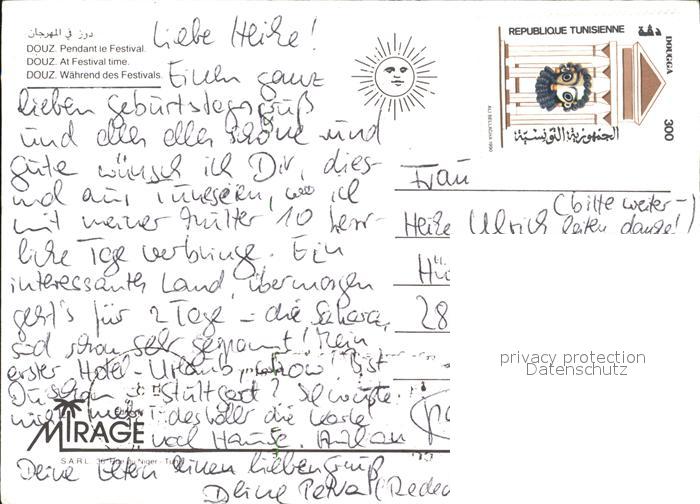 دوز في المهرجان
DOUZ. Pendant le Festival.
DOUZ. At Festival time.
DOUZ. Während des Festivals.
Liebe Heike!
Einen ganz
lieben Geburtstagsgruß
und alles alles schöne und
gute wünsch ich Dir, dies-
mal aus Tunesien, wo ich
mit meiner Mutter 10 herr-
liche Tage verbringe. Ein
interessantes Land, übermorgen
geht's für 2 Tage in die Sahara,
sind schon sehr gespannt! Mein
erster Hotel-Urlaub, Bist
Du schon in Stuttgart? Ich wußte
nicht mehr deshalb die Karte
nach Hause.
Deine Eltern einen lieben Gruß
Deine Petra
MIRAGE
SARL. Rue du Niger - Tunis
REPUBLIQUE TUNISIENNE
دقة
DOUGGA
300
الجمهورية التونسية
ALI BELLAGHA 1990
Frau
Heike Ulrich (bitte weiter-
leiten danke!)
28
privacy protection
Datenschutz